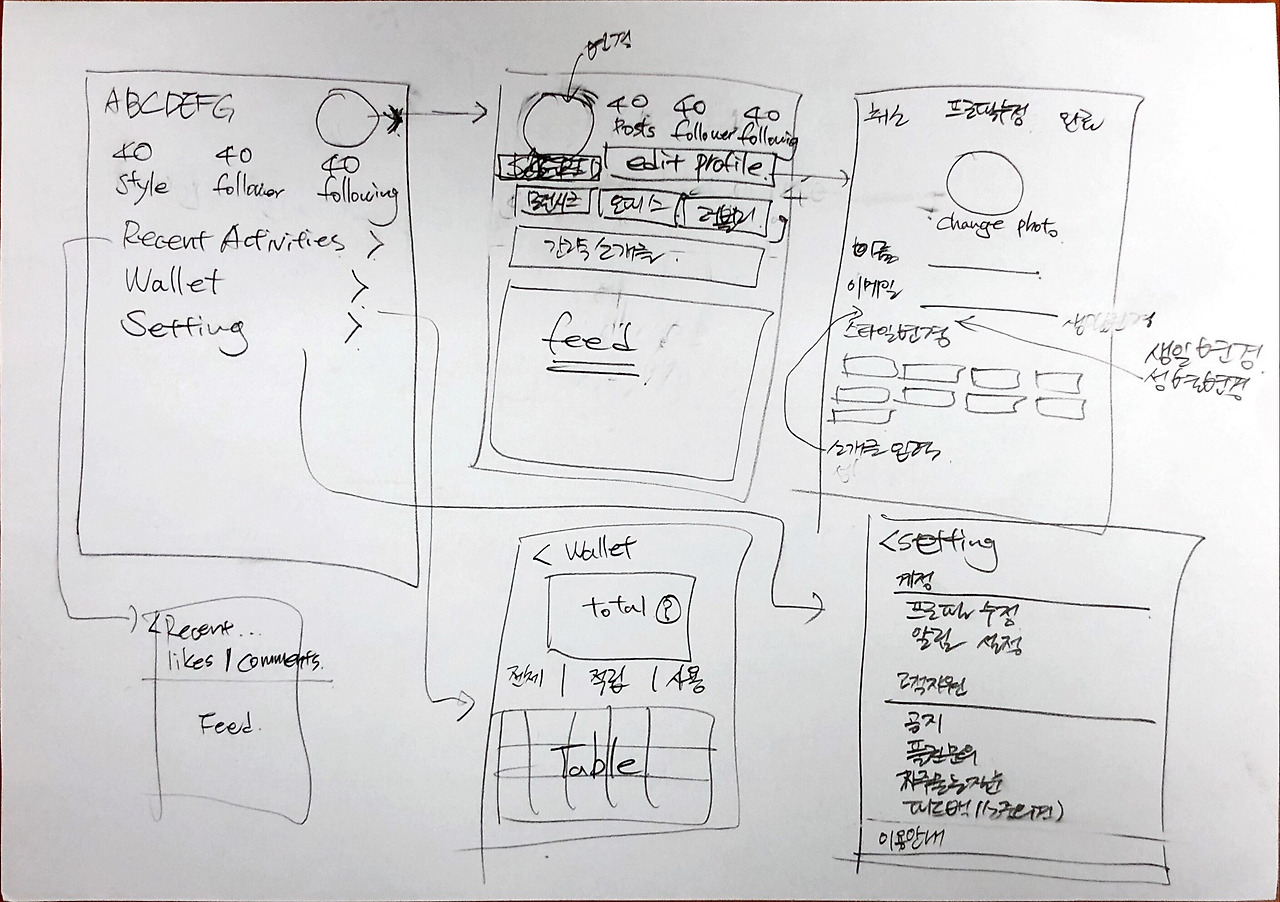 ABCDEFG
40 40 40
Style follower following
Recent Activities >
Wallet >
Setting >
변경
40 40 40
Posts follower following
edit profile
오피스 러블리
간략 소개글.
feed
취소 프로필수정 완료
change photo
이름
이메일
스타일변경
생일변경
성별변경
소개글 입력
< Recent...
likes / comments
Feed.
< Wallet
total ?
전체 | 적립 | 사용
Table
< Setting
계정
프로필 수정
알림 설정
고객지원
공지
자주묻는질문
이용안내